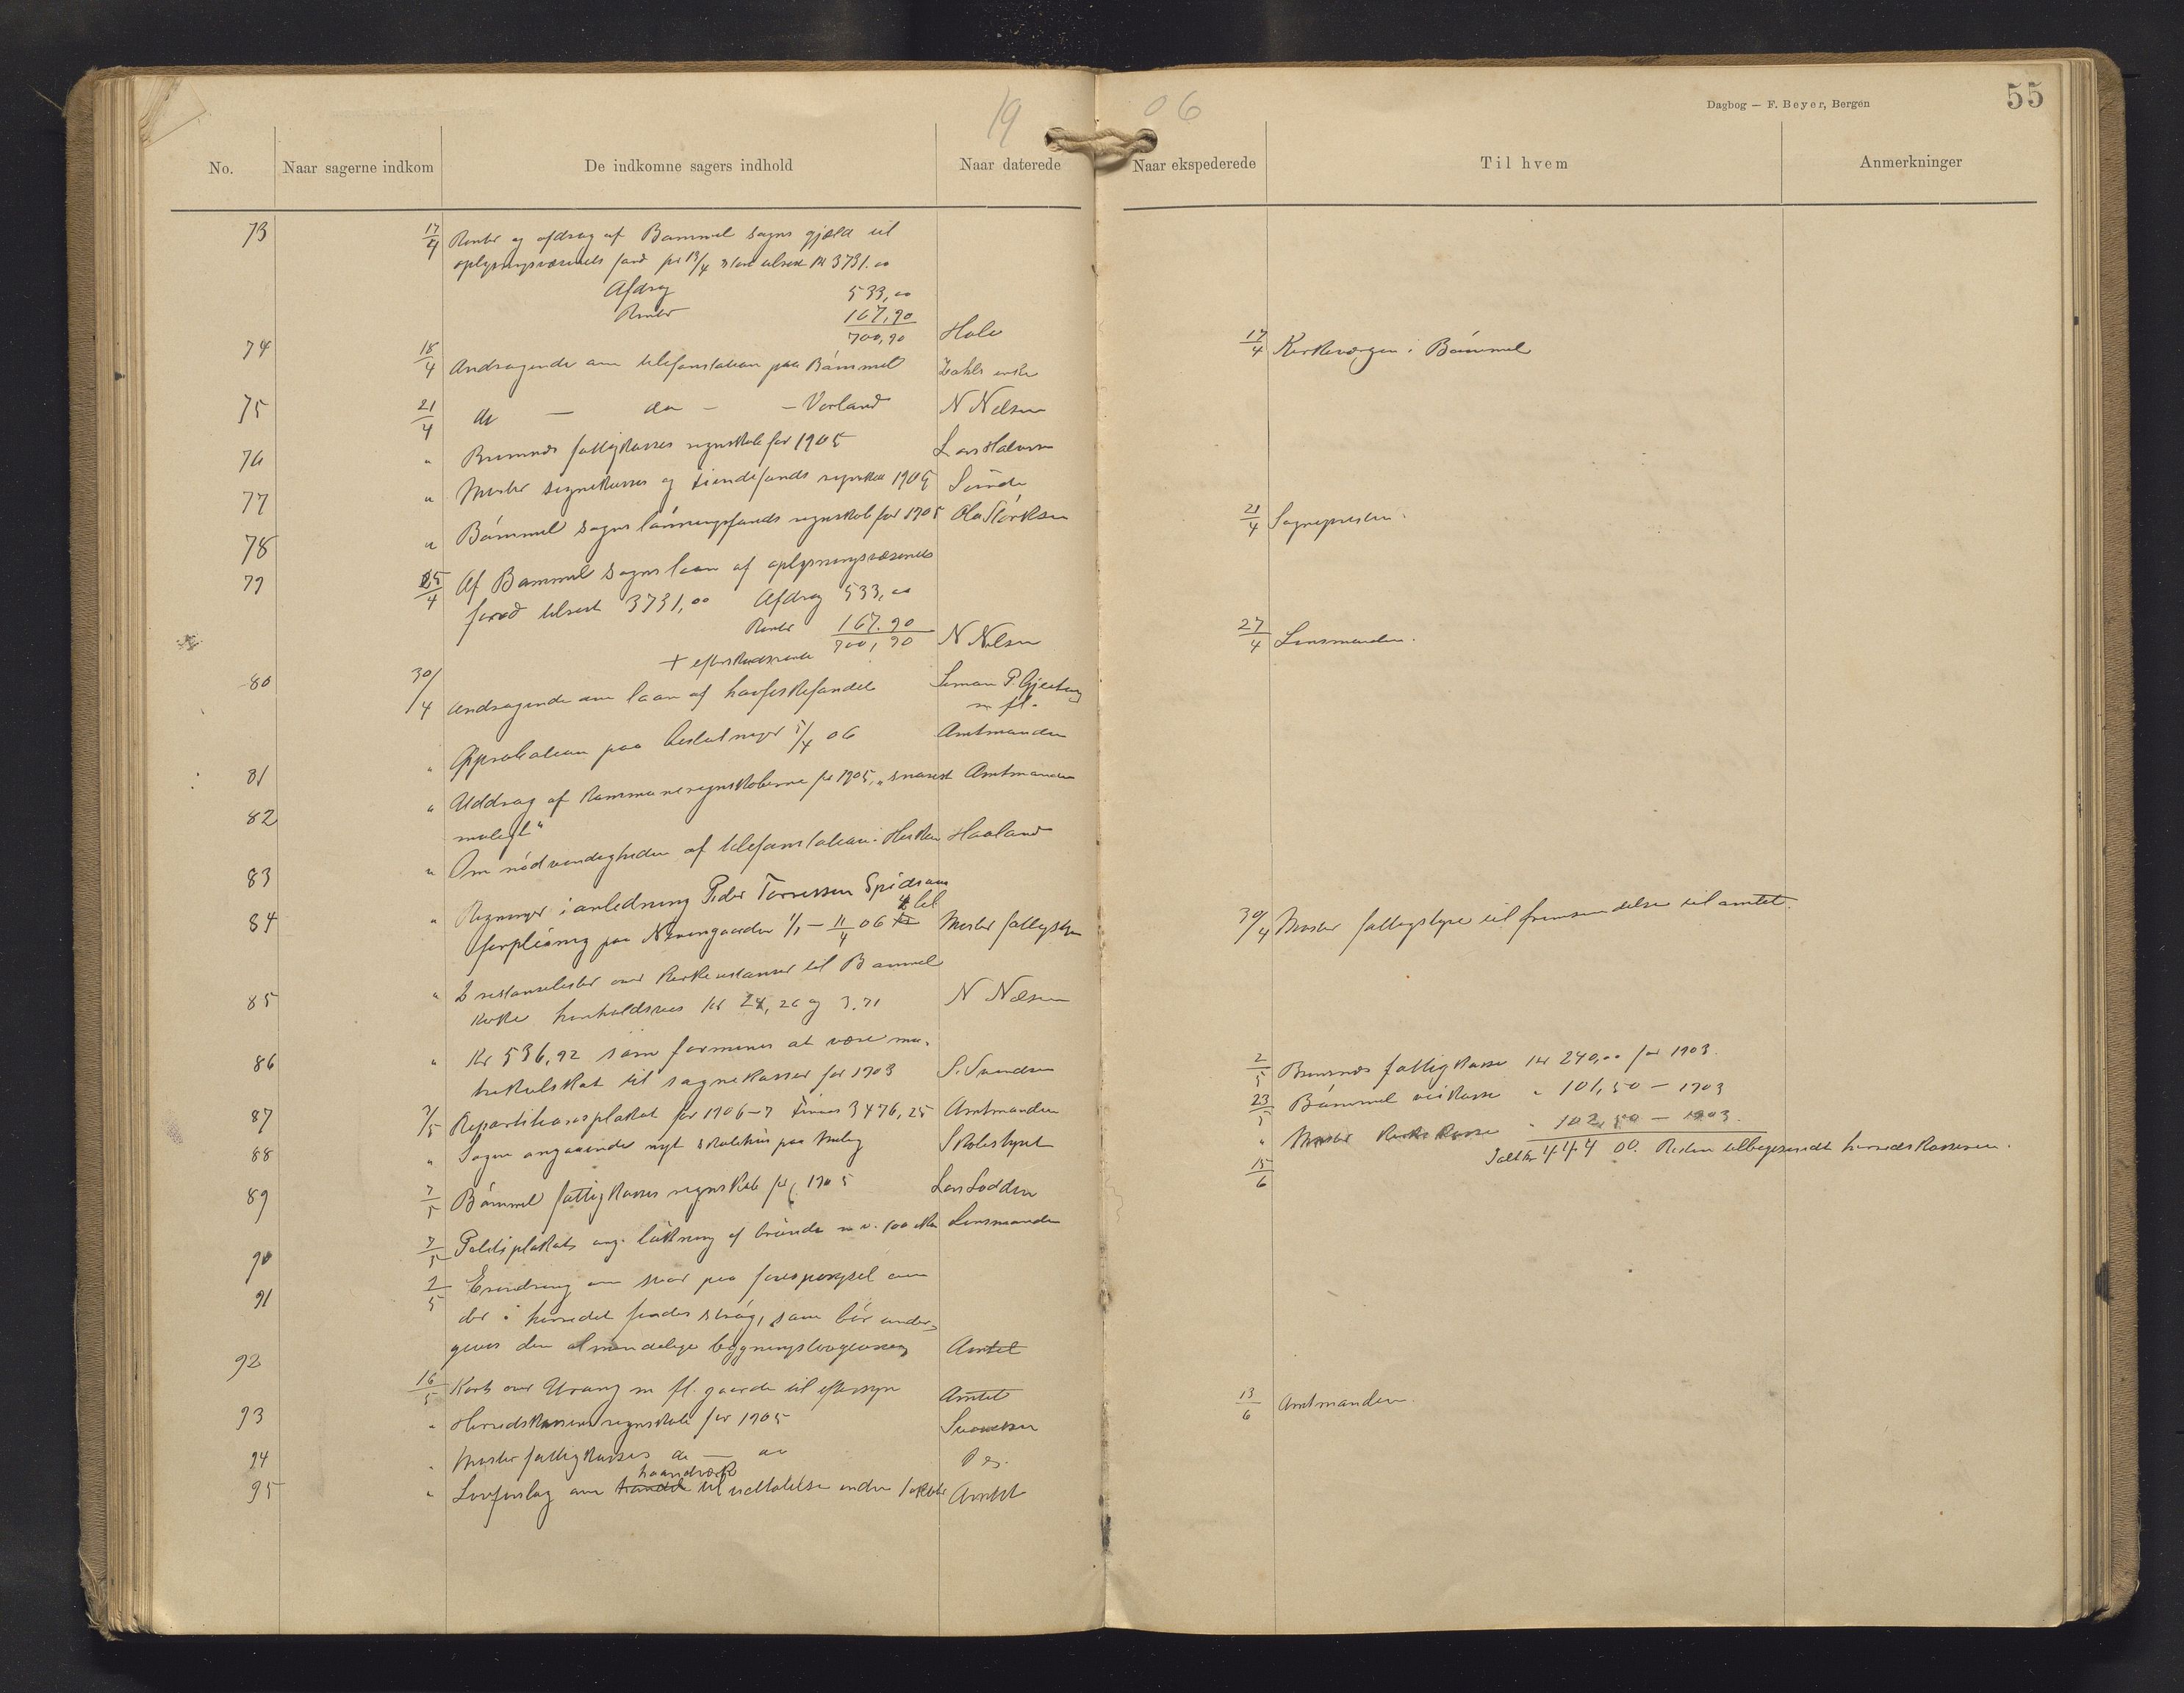 19 06
Dagbog — F. Beyer, Bergen
55
No. Naar sagerne indkom De indkomne sagers indhold Naar daterede Naar ekspederede Til hvem Anmerkninger
73 17/4 Renter og afdrag af Bømmel sogns gjæld til
oplysningsvæsenets fond pr 13/4 tilrest kr 3731.00
Afdrag 533,00
Renter 167,90
700,90 Hole 17/4 Kirkeværgen i Bømmel
74 18/4 Andragende om telefonstation paa Bømmel
75 21/4 do — do — Vorland N Nelsen
76 " Bremnes fattigkasses regnskab for 1905 Lars Halvorsen
77 " Moster sognekasses og tiendefonds regnskab 1905
78 " Bømmel sogns lønningsfonds regnskab for 1905 Ola Størksen 21/4 Sognepresten.
79 25/4 Af Bømmel sogns laan af oplysningsvæsenets
fond tilrest 3731,00 Afdrag 533,00
Renter 167.90
+ efterskudsrente 700,90 N Nelsen 27/4 Lensmanden.
80 30/4 Andragende om laan af havfiskefondet Simon P.
m. fl.
81 " Approbation paa beslutninger 5/4 06 Amtmanden
82 " Uddrag af kommuneregnskaberne for 1905, "snarest Amtmanden
muligt"
83 " Om nødvendigheden af telefonstation i Hisken Haaland
84 " Regninger i anledning Peder Tørresen
forpleining paa Neevengaarden 1/1 — 11/4 06 til Moster fattigstyre 30/4 Moster fattigstyre til fremsendelse til amtet.
85 " 2 restanselister over kirkerestanser til Bømmel
kirke henholdsvis kr 24,26 og 3.71 N Nelsen
86 " Kr 536,92 som formenes at være ma-
trikulskat til sognekasser for 1903 S. Svendsen 2/5 Bremnes fattigkasse kr 240,00 for 1903.
23/5 Bømmel veikasse " 101,50 — 1903
" Moster kirkekasse " 102,50 — 1903.
15/6 Ialt kr 444 00. Resten tilbagesendt herredskassereren.
87 7/5 Repartitionsplakat for 1906-7 Finnes 3476,25 Amtmanden
88 " Sagen angaaende nyt skolehus paa Meling Skolestyret
89 7/5 Bømmel fattigkasses regnskab for 1905 Lars Lodden
90 7/5 Politiplakat ang. lukning af brønde m. v. Lensmanden
91 2/5 Erindring om svar paa forespørgsel om
der i herredet findes strøg, som bør under-
gives den almindelige bygningslovgivning Amtet
92 16/5 Kart over Urang m fl. gaarde til eftersyn Amtet 13/6 Amtmanden.
93 " Herredskassens regnskab for 1905 Svendsen
94 " Moster fattigkasses do — do
95 " Lovforslag om handel haandverk til udtalelse inden 1 oktober Amtet